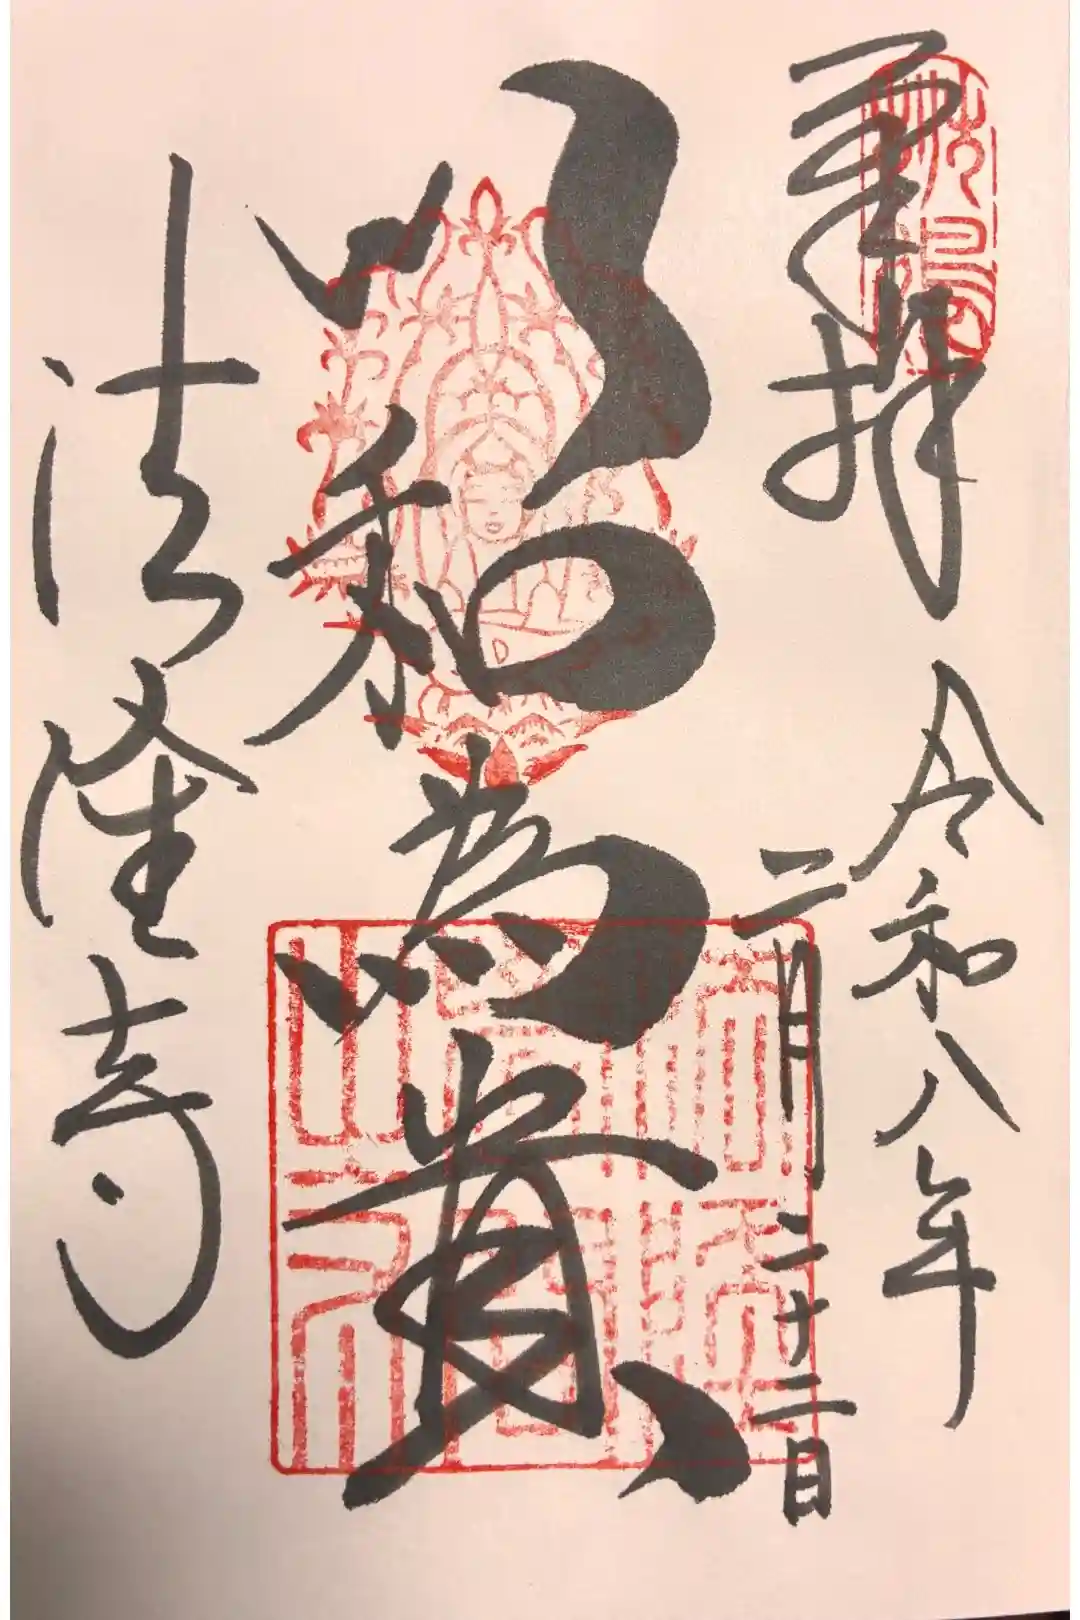 奉拝
令和八年
二月二十二日
以和為貴
法隆寺